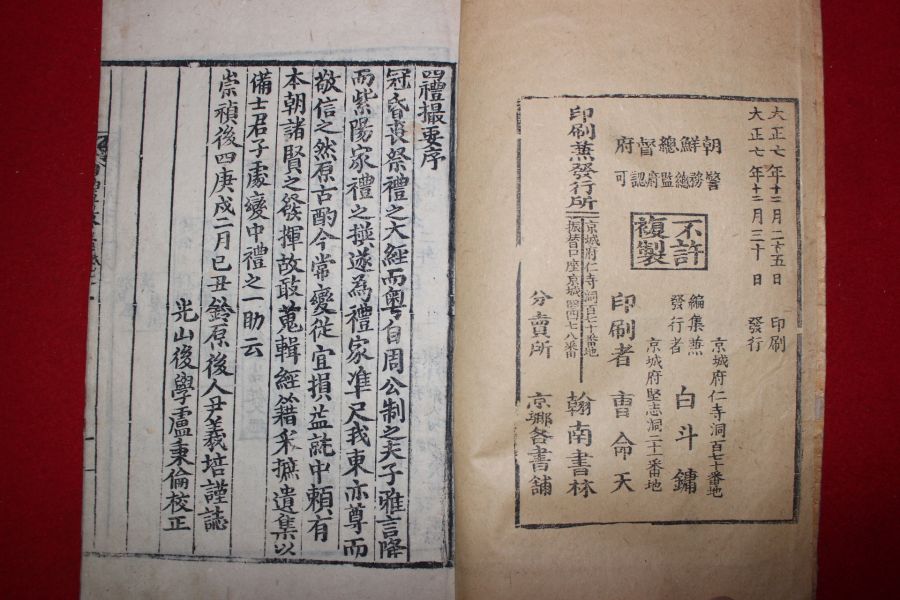 大正七年十二月二十五日 印刷
大正七年十二月三十日 發行
朝鮮總督府
警務總監府認可
不許
複製
京城府仁寺洞百七十番地
編集兼
發行者 白斗鏞
京城府堅志洞二十一番地
印刷者 曺命天
印刷兼發行所
京城府仁寺洞百七十番地
振替口座京城四四七八番
翰南書林
分賣所 京鄉各書舖
四禮撮要序
冠昏喪祭禮之大經而粤自周公制之夫子雅言降
而紫陽家禮之撰遂為禮家準尺我東亦尊而
敬信之然原古酌今常變從宜損益就中賴有
本朝諸賢之發揮故敢蒐輯經籍采摭遺集以
備士君子處變中禮之一助云
崇禎後四庚戌二月巳丑鈴原後人尹羲培謹誌
光山後學盧秉倫校正